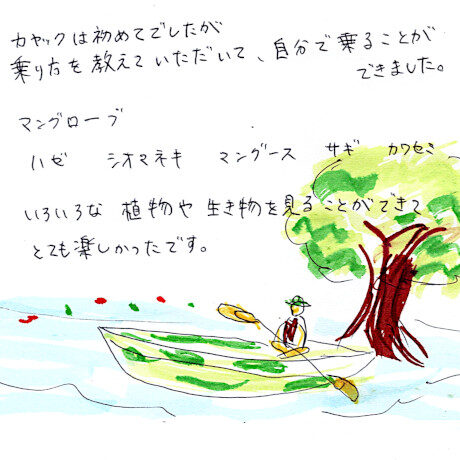 カヤックは初めてでしたが
乗り方を教えていただいて、自分で乗ることが
できました。
マングローブ
ハゼ シオマネキ マングース サギ カワセミ
いろいろな 植物や 生き物を見ることができて
とても楽しかったです。